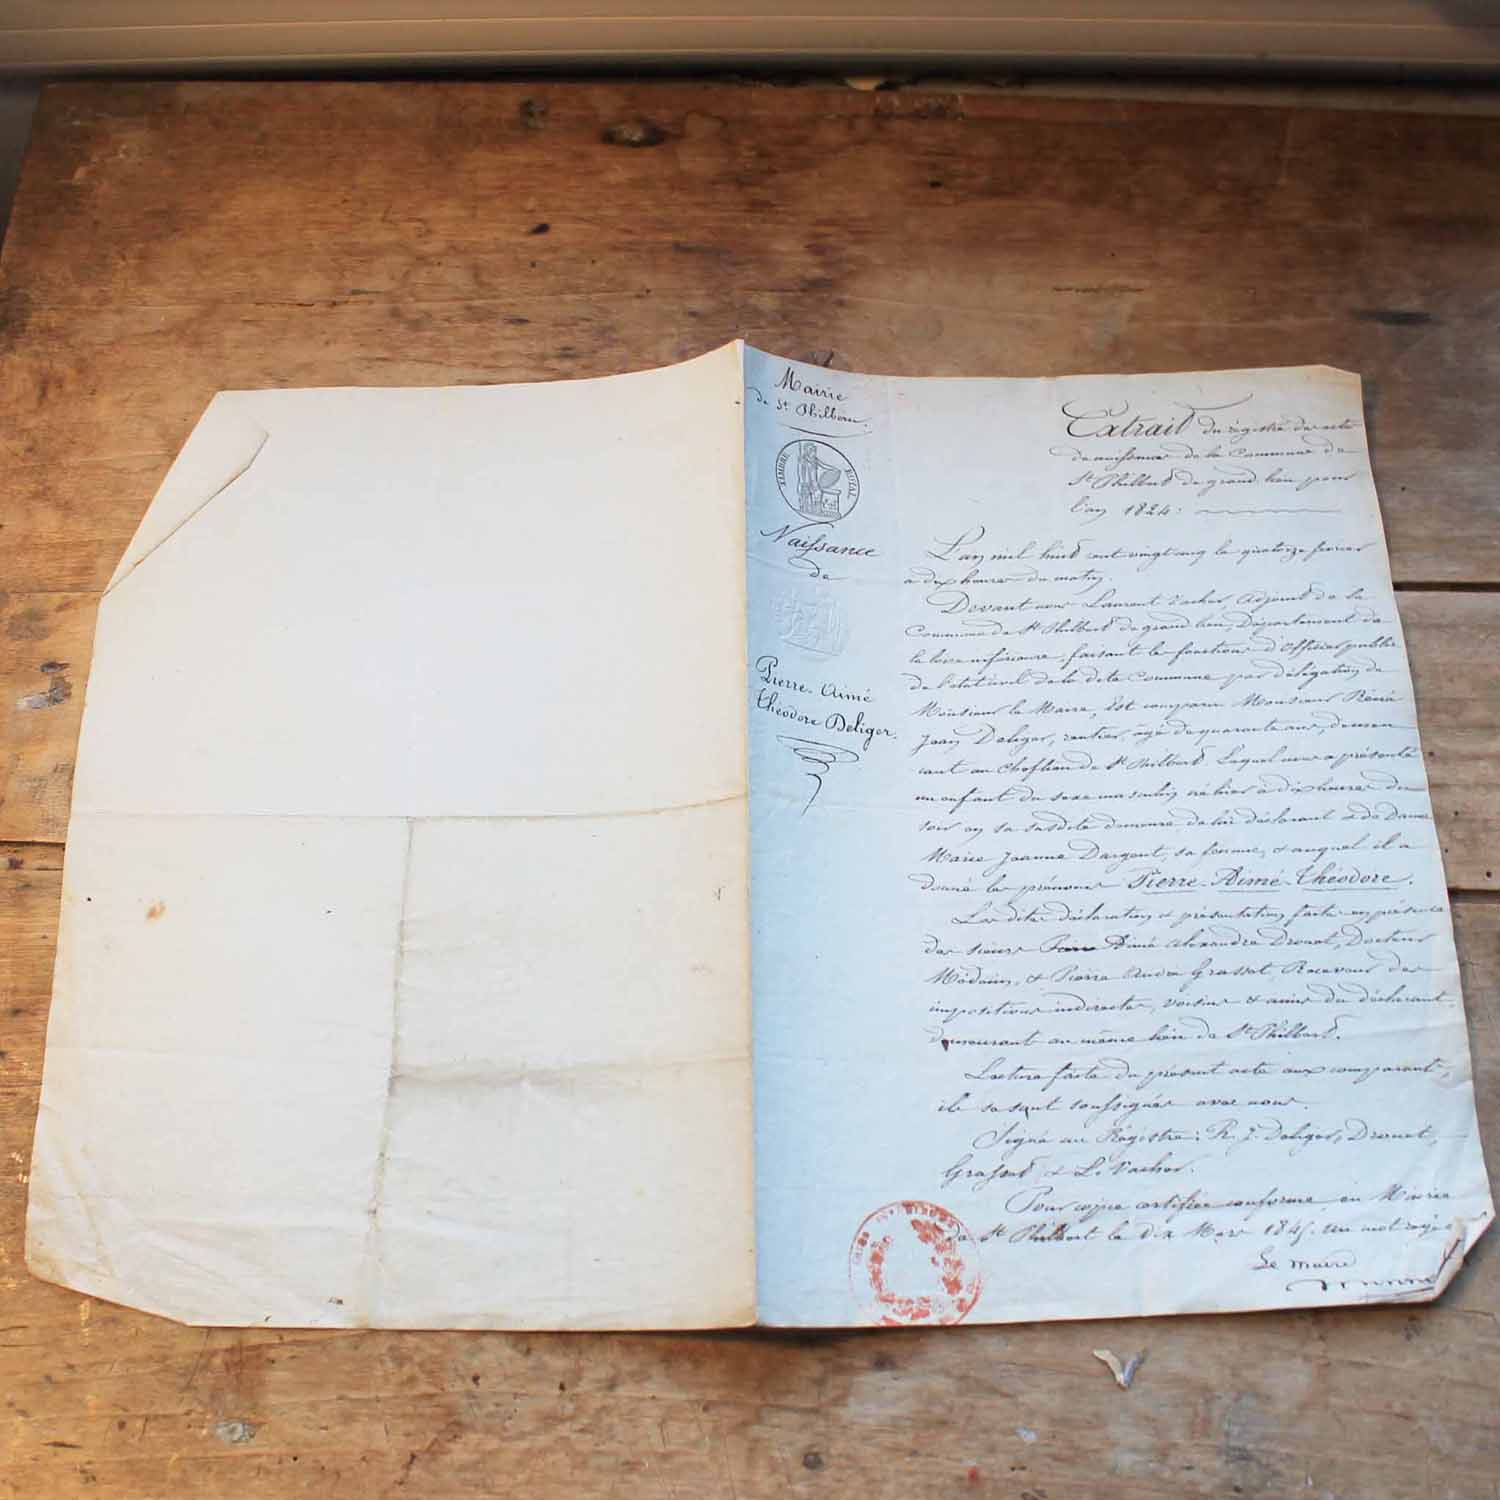 Mairie
de St. Philbert.
TIMBRE ROYAL
Naissance
de
Pierre-Aimé
Théodore Deliger.
Extrait du régistre des actes
de naissances de la Commune de
St. Philbert de grand lieu pour
l'an 1824:
L'an mil huit cent vingt cinq le quatorze février
à dix heures du matin.
Devant nous Laurent Vacher, Adjoint de la
Commune de St. Philbert de grand lieu, Département de
la loire inférieure, faisant les fonctions d'Officier public
de l'état civil de la dite Commune par délégation de
Monsieur le Maire, Est comparu Monsieur Réné
Jean Deliger, rentier, âgé de quarante ans, demeu
rant au chef lieu de St. Philbert. Lequel nous a présenté
un enfant du sexe masculin, né hier à dix heures du
soir en sa susdite demeure, de lui déclarant & de Dame
Marie Jeanne Dargent, sa femme, & auquel il a
donné les prénoms Pierre-Aimé-Théodore.
Les dites déclaration & présentation faites en présence
des sieurs Aimé Alexandre Drouet, Docteur
Médecin, & Pierre André Grasset, Receveur des
impositions indirectes, voisins & amis du déclarant,
demeurant au même lieu de St. Philbert.
Lecture faite du présent acte aux comparants,
ils se sont soussignés avec nous.
Signé au Régistre: R. J. Deliger, Drouet,
Grasset & L. Vacher.
Pour copie certifiée conforme, en Mairie
de St. Philbert le dix Mars 1845. un mot rayé
Le maire